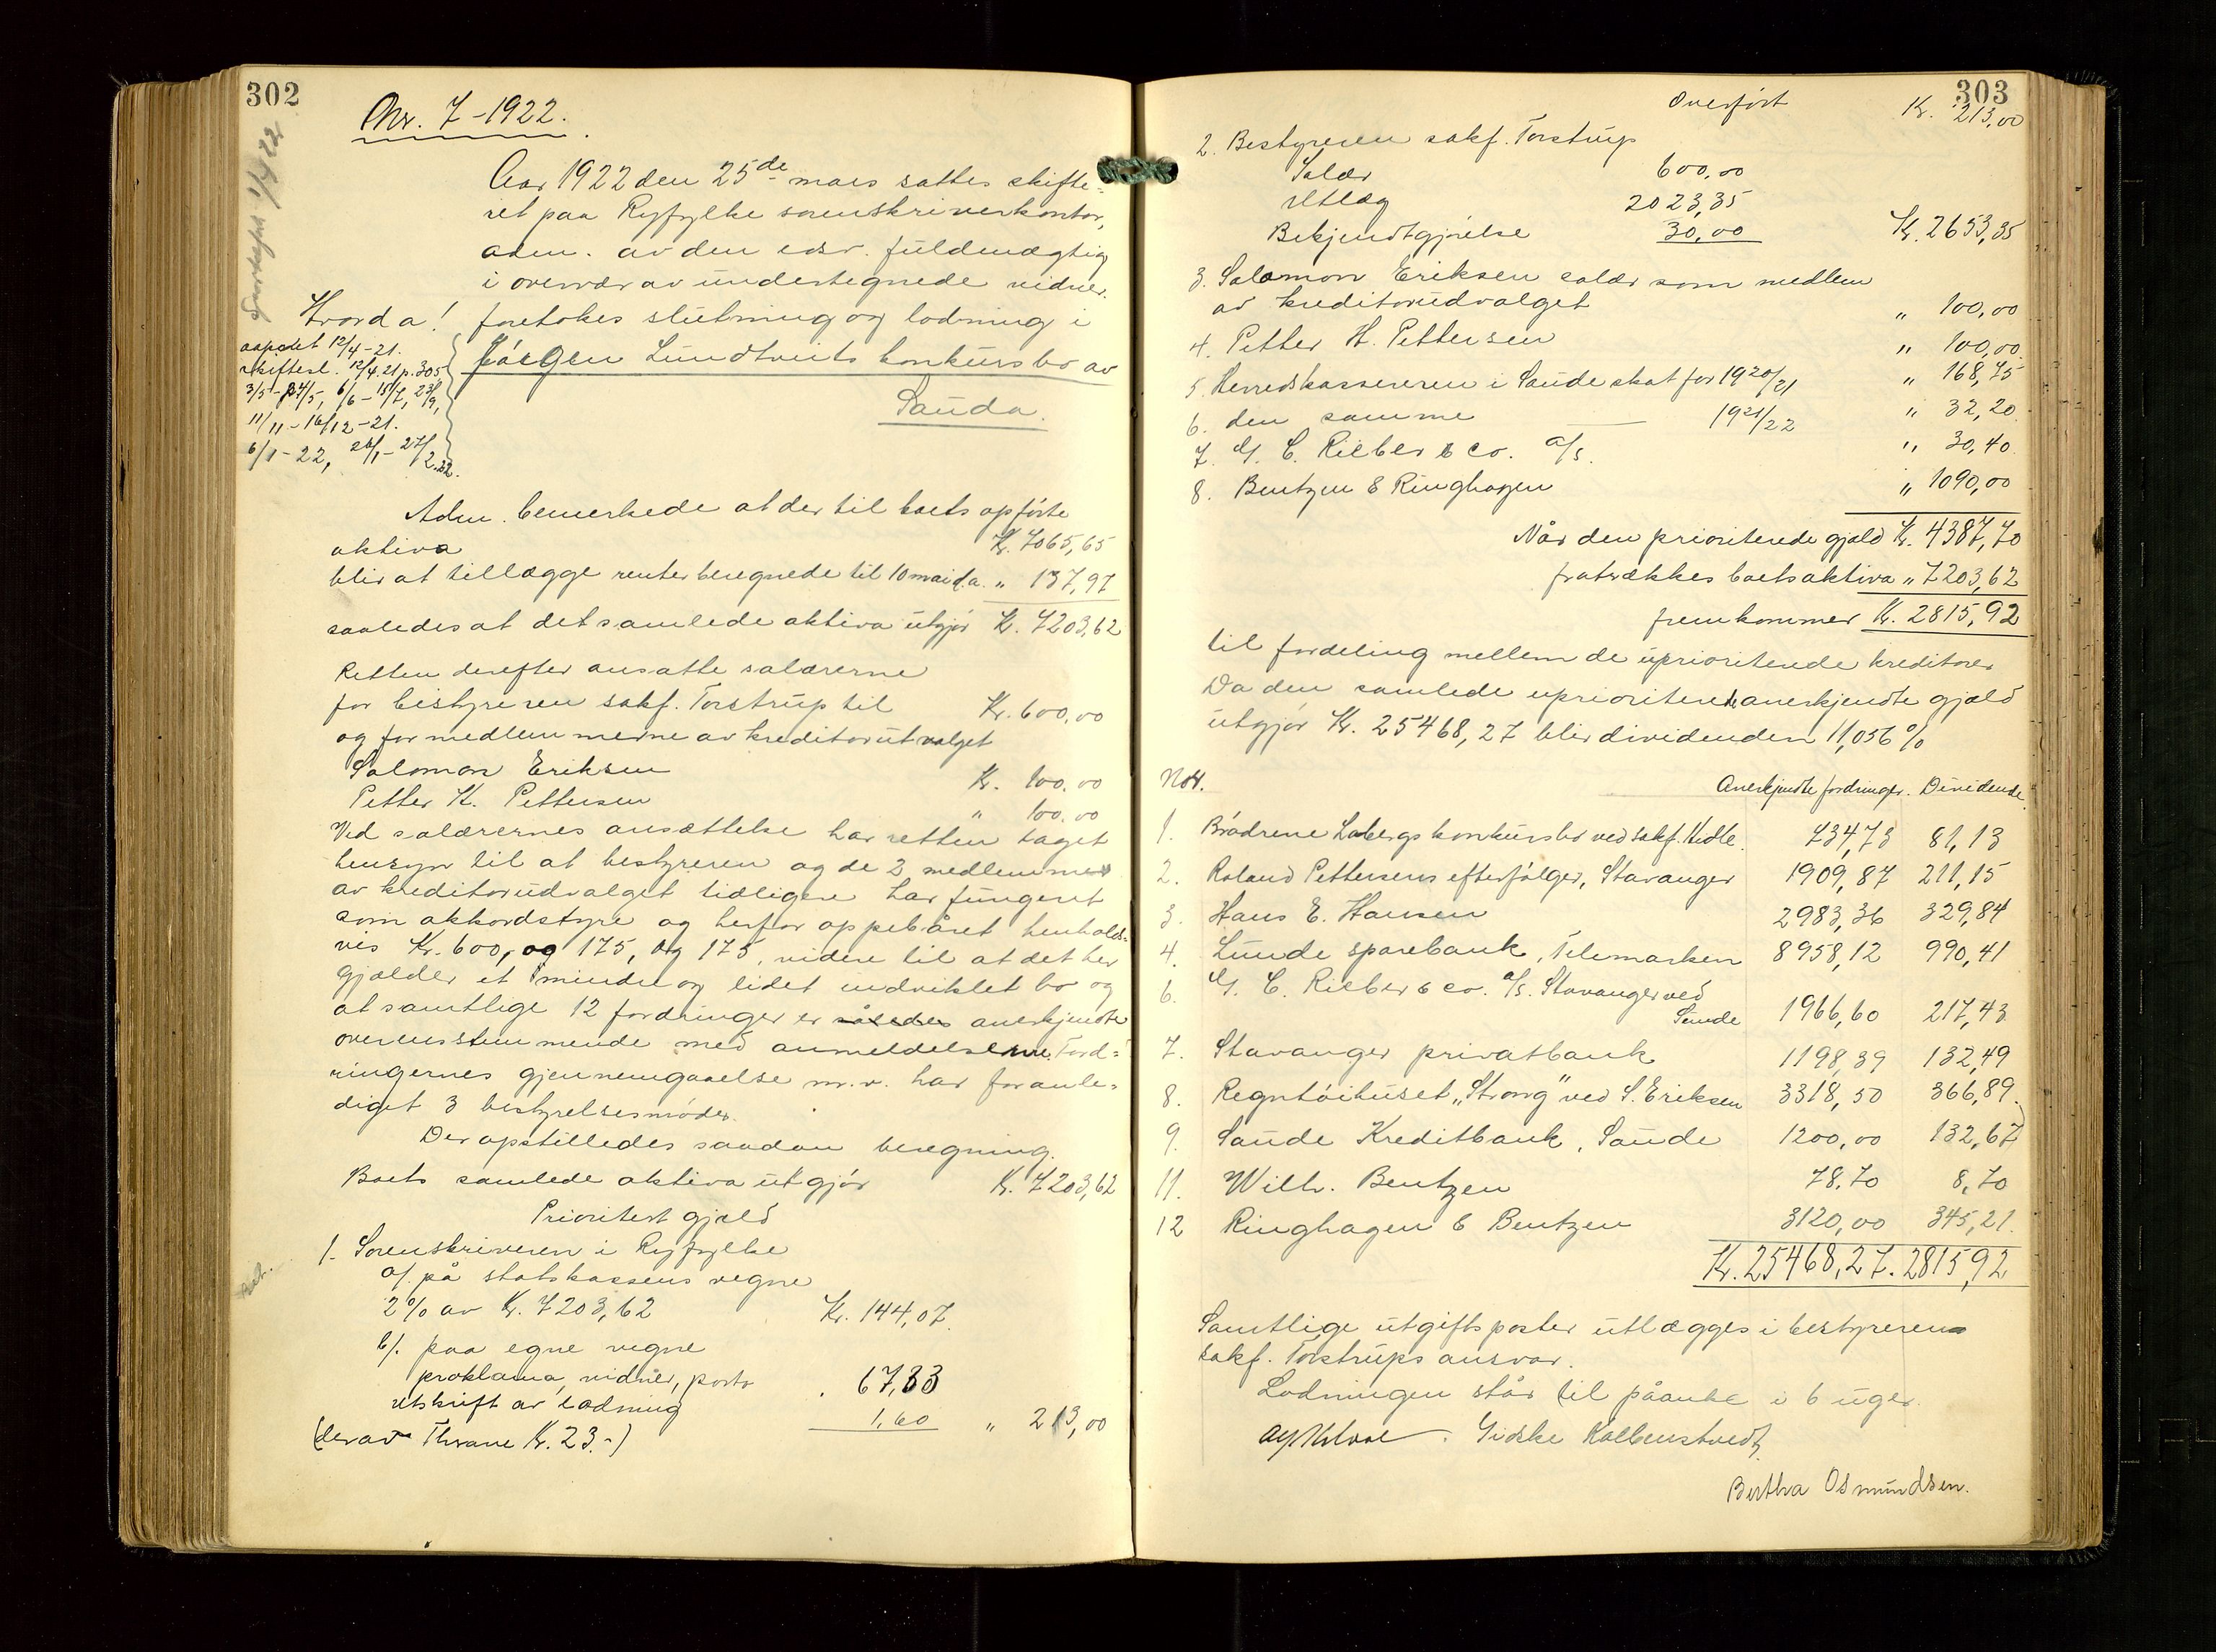 302
Nr. 7-1922.
Aar 1922 den 25de mars sattes skifte-
ret paa Ryfylke sorenskriverkontor,
adm. av den edsv. fuldmægtig
i overvær av undertegnede vidner.
Hvorda! foretokes slutning og lodning i
Jørgen Lundtveits konkursbo av
Sauda.
aapnet 12/4-21.
skiftesl. 12/4.21 p.305
3/5 - 24/5, 6/6 - 15/7, 23/9,
11/11 - 16/12 - 21.
6/1 - 22, 26/1 - 27/2.22.
Adm. bemerkede at der til boets opførte
aktiva Kr. 7065,65
blir at tillægge renter beregnede til 10 mai d.a. " 137,97
saaledes at det samlede aktiva utgjør Kr. 7203,62
Retten derefter ansatte salærerne
for bestyreren sakf. Torstrup til Kr. 600,00
og for medlemmerne av kreditorutvalget
Salomon Eriksen Kr. 100.00
Petter H. Pettersen " 100.00
Ved salærernes ansættelse har retten taget
hensyn til at bestyreren og de 2 medlemmer
av kreditorudvalget tidligere har fungert
som akkordstyre og herfor oppebåret henholds-
vis Kr. 600, og 175, og 175, videre til at det her
gjælder et mindre og lidet indviklet bo og
at samtlige 12 fordringer er således anerkjendte
overensstemmende med anmeldelserne. Ford-
ringernes gjennemgaaelse m.v. har foranle-
diget 3 bestyrelsesmøder.
Der opstilledes saadan beregning.
Boets samlede aktiva utgjør Kr. 7203,62
Prioritert gjæld
1. Sorenskriveren i Ryfylke
a/. på statskassens vegne
2% av Kr. 7203,62 Kr. 144,07
b/. paa egne vegne
proklama, vidner, porto 67,33
utskrift av lodning 1,60 " 213,00
(derav Thrane Kr. 23.-)
303
Overført Kr. 213,00
2. Bestyreren sakf. Torstrup
Salær 600,00
Utlæg 2023,35
Bekjendtgjørelse 30,00 Kr. 2653,35
3. Salomon Eriksen salær som medlem
av kreditorudvalget " 100,00
4. Petter H. Pettersen " 100,00
5. Herredskassereren i Saude skat for 1920/21 " 168,75
6. den samme 1921/22 " 32,20
7. G. C. Rieber & Co. A/S. " 30,40
8. Bentzen & Ringhagen " 1090,00
Når den prioriterede gjæld Kr. 4387,70
fratrækkes boets aktiva " 7203,62
fremkommer Kr. 2815,92
til fordeling mellem de uprioriterede kreditorer
Da den samlede uprioriterede anerkjendte gjæld
utgjør Kr. 25468,27 blir dividenden 11,056 %
Nor. Anerkjendte fordringer. Dividende.
1. Brødrene Labergs konkursbo ved sakf. Hidle. 734,73 81,13
2. Roland Pettersens efterfølger, Stavanger 1909,87 211,15
3. Hans E. Hansen 2983,36 329,84
4. Lunde sparebank, Telemarken 8958,12 990,41
6. G. C. Rieber & Co. A/S. Stavanger ved
Sunde 1966,60 217,43
7. Stavanger privatbank 1198,39 132,49
8. Regntøihuset "Strong" ved S. Eriksen 3318,50 366,89.
9. Saude Kreditbank, Saude 1200,00 132,67
11. Wilh. Bentzen 78.70 8,70
12 Ringhagen & Bentzen 3120,00 345,21.
Kr. 25468,27. 2815,92
Samtlige utgiftsposter utlægges i bestyreren
sakf. Torstrups ansvar.
Lodningen står til påanke i 6 uger.
Gidske Kolbenstvedt,
Bertha Osmundsen.